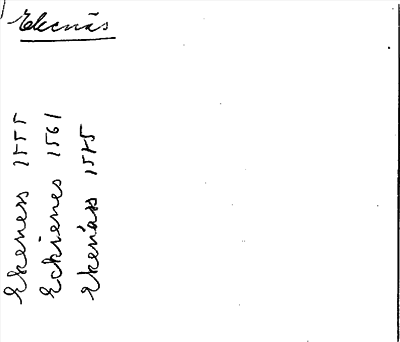 Ekenäs
Ekeness 1555
Eckienes 1561
Ekenäss 1575